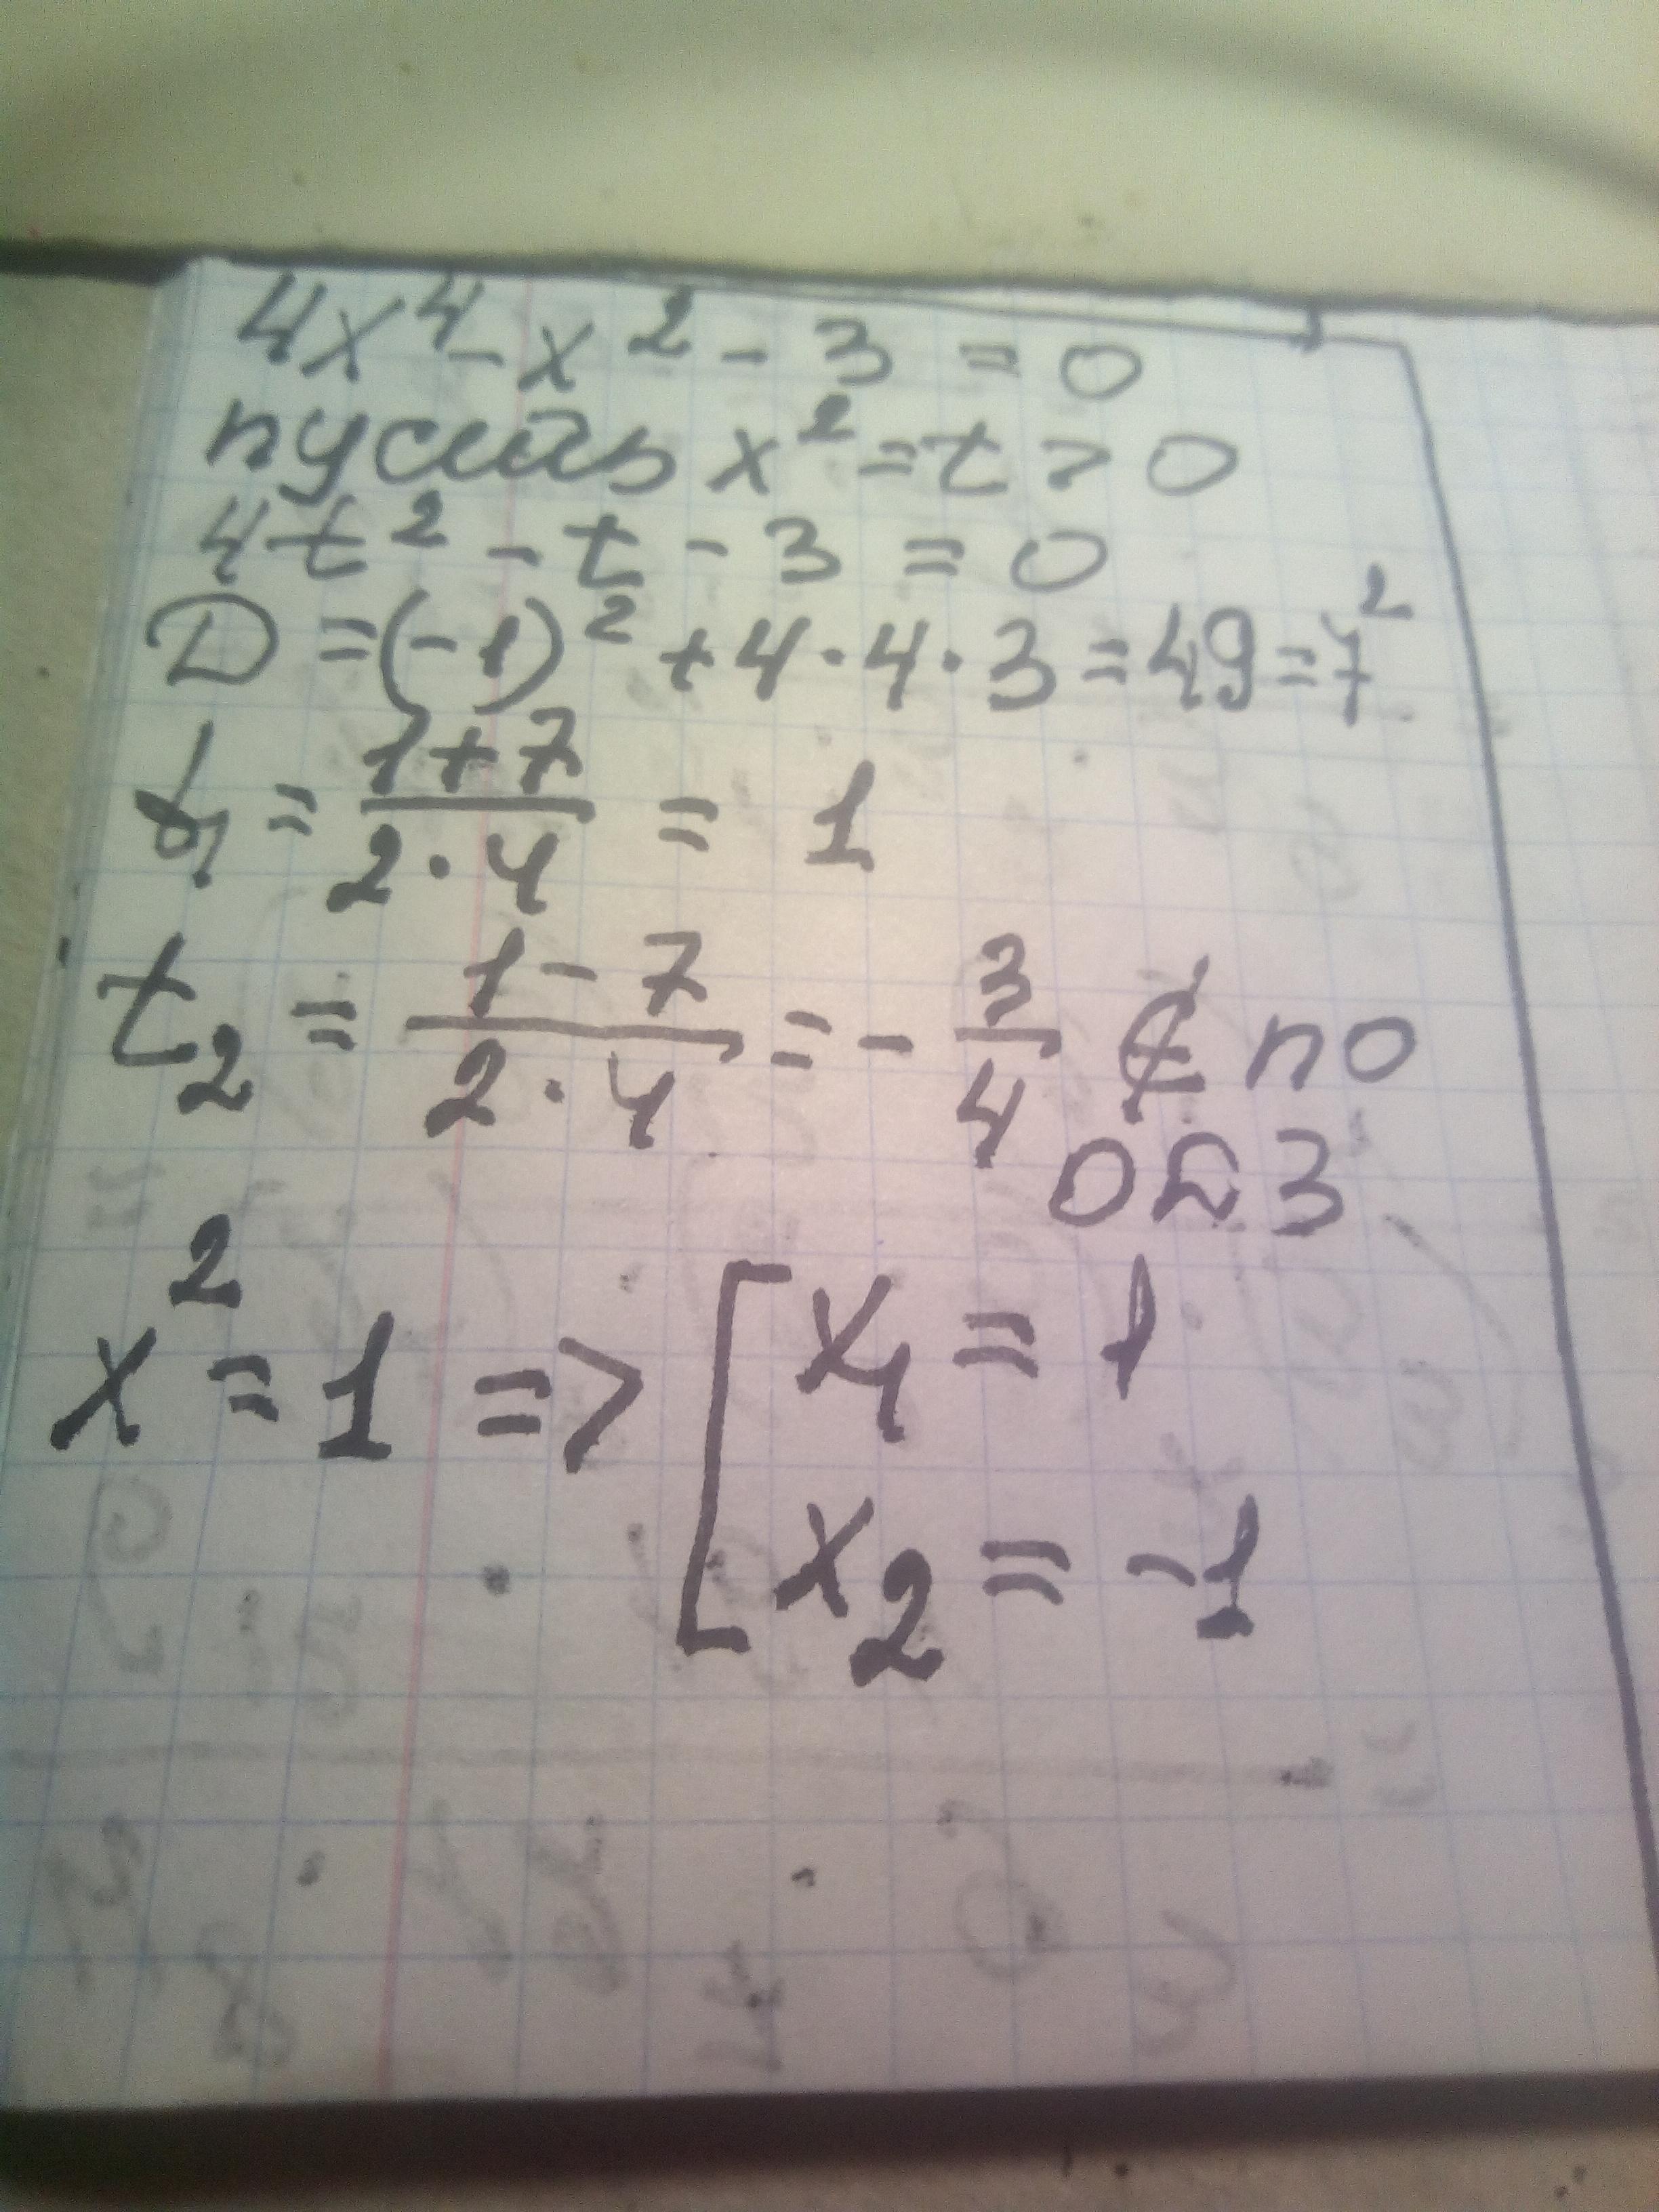 4x⁴ - x² - 3 = 0
пусть x² = t > 0
4t² - t - 3 = 0
D = (-1)² + 4·4·3 = 49 = 7²
t₁ = (1+7)/(2·4) = 1
t₂ = (1-7)/(2·4) = -3/4 ∉ по
ОДЗ
x² = 1 => [ x₁ = 1
x₂ = -1